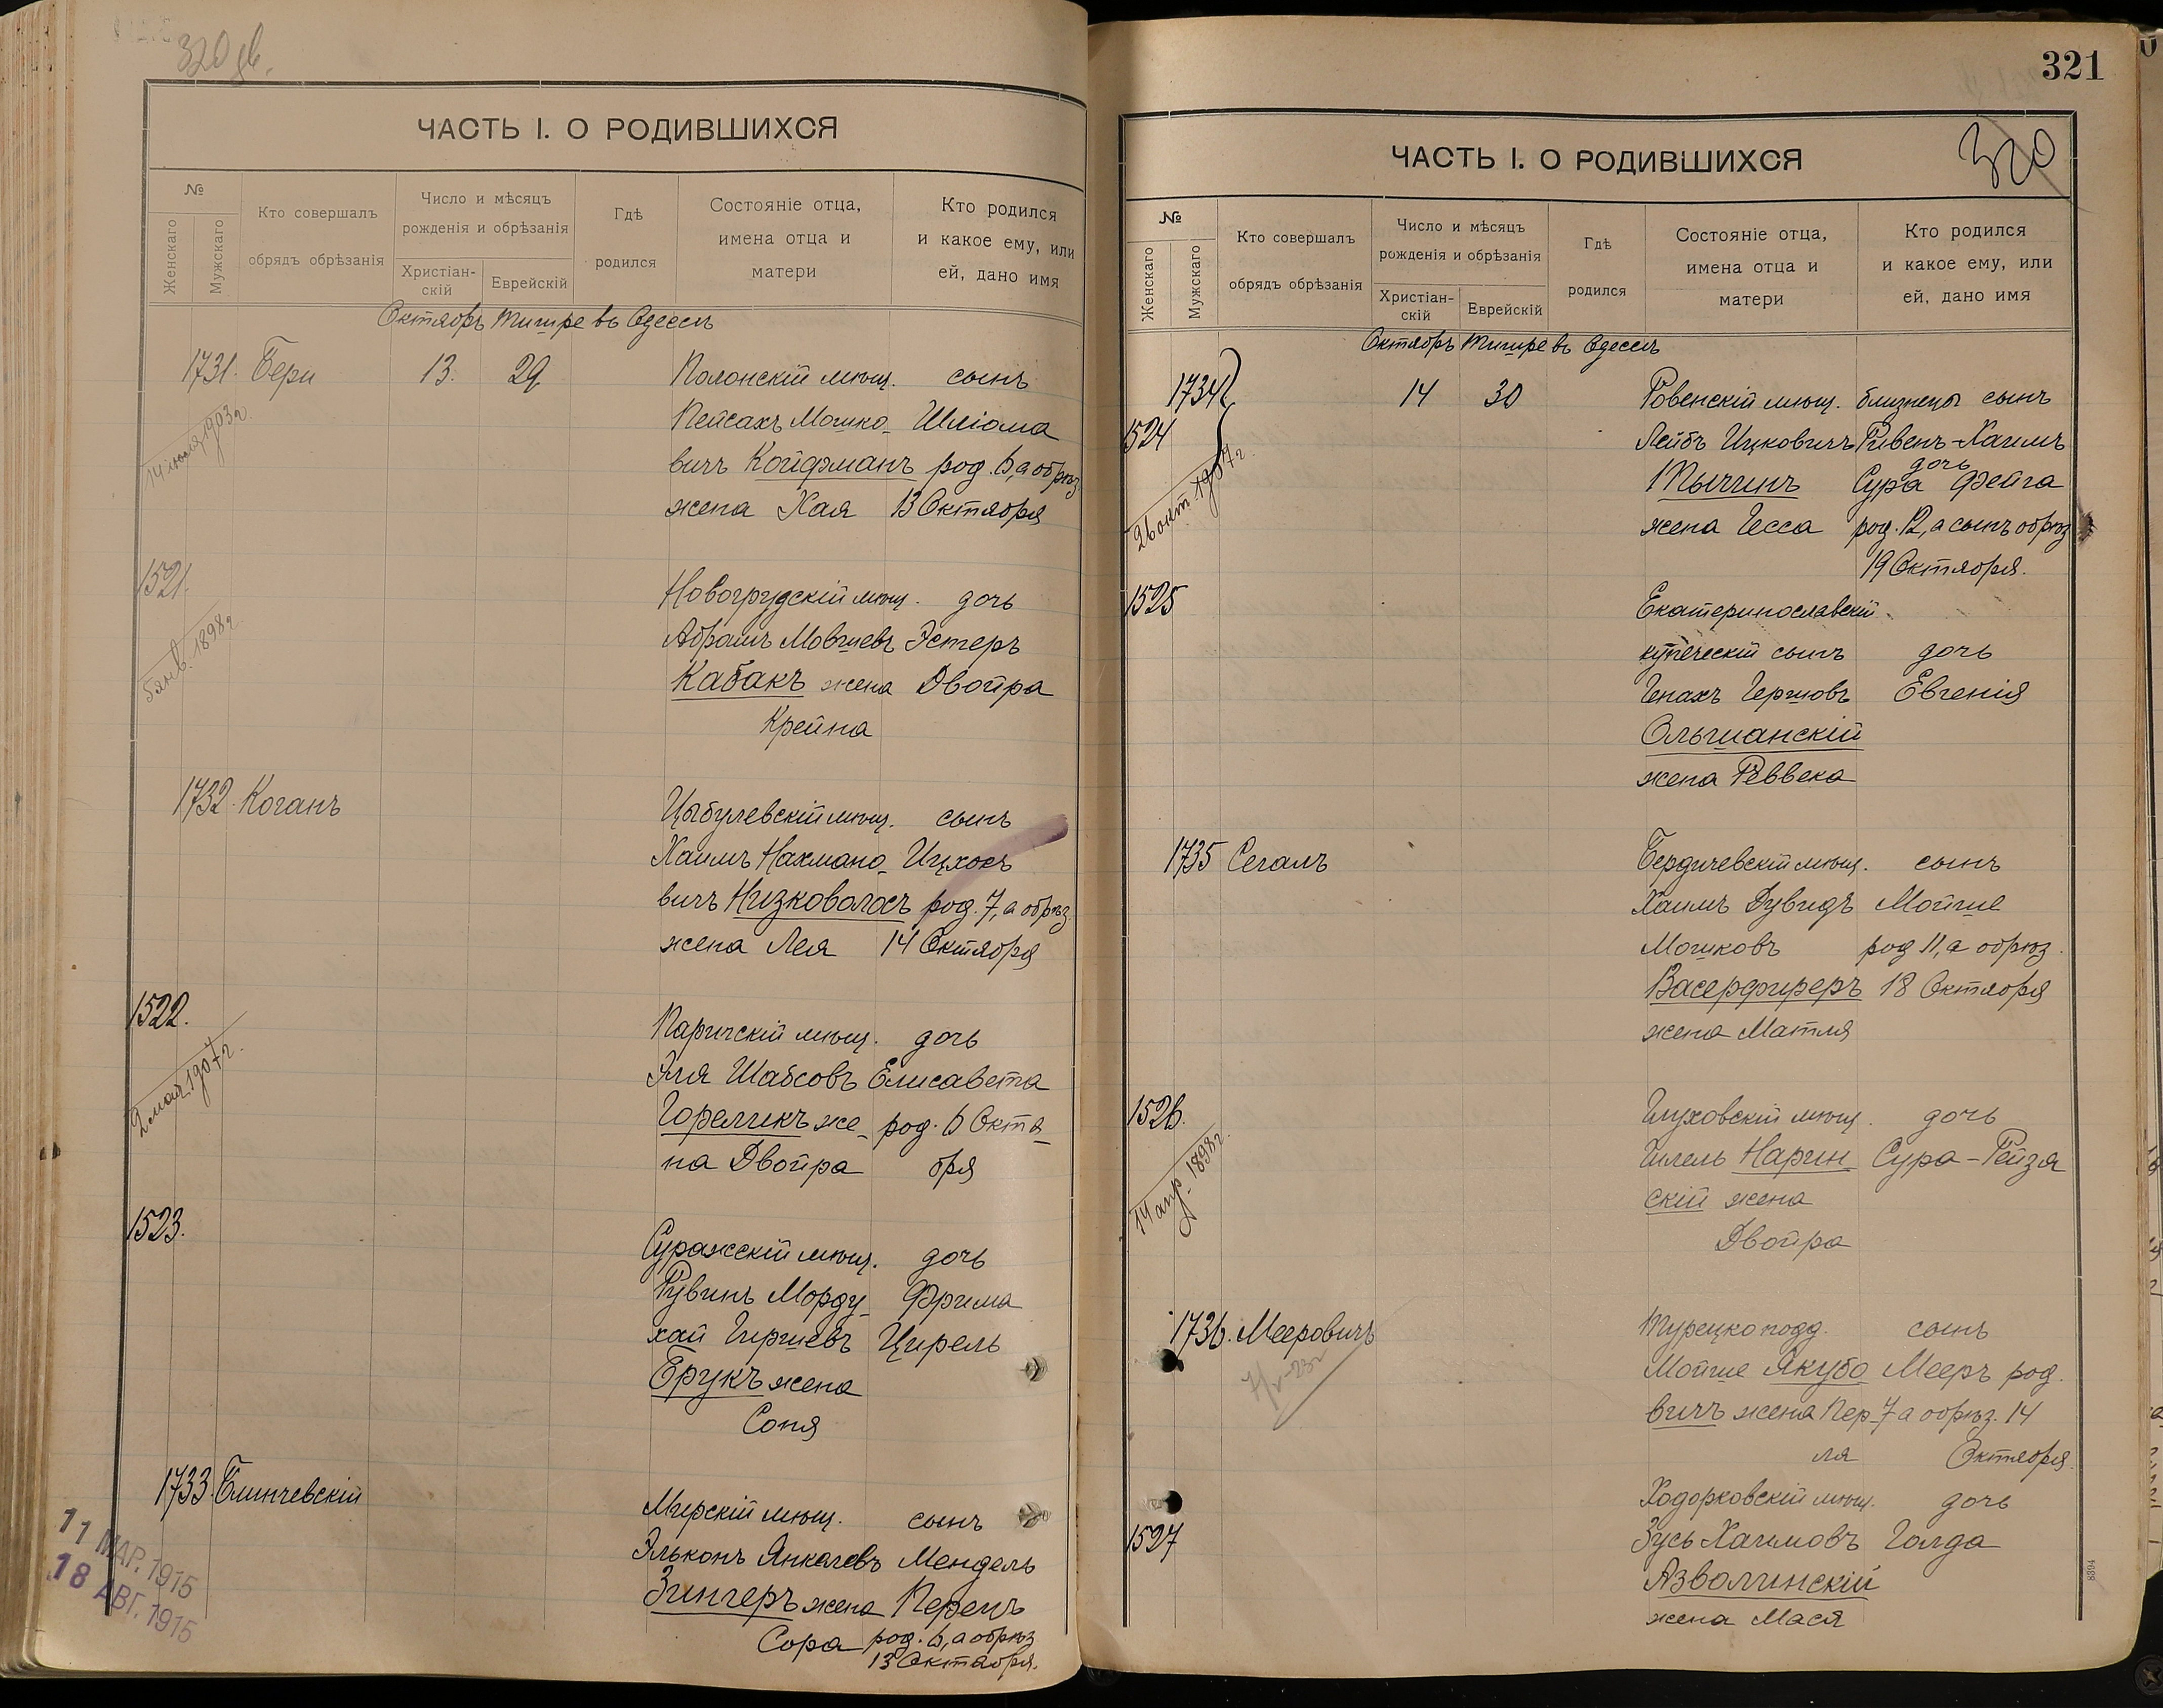 320 об.
ЧАСТЬ I. О РОДИВШИХСЯ
№
Женскаго
Мужскаго
Кто совершалъ
обрядъ обрѣзанія
Число и мѣсяцъ
рожденія и обрѣзанія
Христіан-
скій
Еврейскій
Гдѣ
родился
Состояніе отца,
имена отца и
матери
Кто родился
и какое ему, или
ей, дано имя
Октябрь Тишре въ Одессѣ
1731. Бери 13. 29. Полонскій мѣщ. сынъ
14 іюля 1903 г.
Пейсахъ Мошко- Шліома
вичъ Койфманъ род. 6, а обрѣз.
жена Хая 13 Октября
1521. Новогрудскій мѣщ. дочь
5 янв. 1898 г.
Абрамъ Мовшевъ Эстеръ
Кабакъ жена Двойра
Крейна
1732. Коганъ Цыбулевскій мѣщ. сынъ
Хаимъ Нахмано- Ицхокъ
вичъ Низковолосъ род. 7, а обрѣз.
жена Лея 14 Октября
1522. Паричскій мѣщ. дочь
2 мая 1907 г.
Эля Шабсовъ Елисавета
Гореликъ же- род. 6 Октя-
на Двойра бря
1523. Суражскій мѣщ. дочь
Рувинъ Морду- Фрима
хай Гиршевъ Цирель
Брукъ жена
Соня
1733. Блинчевскій Мирскій мѣщ. сынъ
Эльконъ Янкелевъ Мендель
Зингеръ жена Перецъ
Сора род. 6, а обрѣз
13 Октября.
11 МАР. 1915
18 АВГ. 1915
321
320
ЧАСТЬ I. О РОДИВШИХСЯ
№
Женскаго
Мужскаго
Кто совершалъ
обрядъ обрѣзанія
Число и мѣсяцъ
рожденія и обрѣзанія
Христіан-
скій
Еврейскій
Гдѣ
родился
Состояніе отца,
имена отца и
матери
Кто родился
и какое ему, или
ей, дано имя
Октябрь Тишре въ Одессѣ
1734 14 30 Ровенскій мѣщ. близнецы сынъ
1524 Лейбъ Ицковичъ Рувенъ-Хаимъ
26 окт. 1907 г.
дочь
Тычинъ Сура Фейга
жена Гесса род. 12, а сынъ обрѣз
19 Октября.
1525 Екатеринославскій
купеческій сынъ дочь
Генахъ Гершовъ Евгенія
Ольшанскій
жена Реввека
1735 Сегалъ Бердичевскій мѣщ. сынъ
Хаимъ Дувидъ Мойше
Мошковъ род 11, а обрѣз.
Васерфиреръ 18 Октября
жена Матля
1526. Глуховскій мѣщ. дочь
14 апр. 1898 г.
Гилель Нарин Сура-Рейзя
скій жена
Двойра
1736. Мееровичъ Турецкоподд. сынъ
Мойше Якубо Мееръ род.
вичъ жена Пер- 7 а обрѣз. 14
ля Октября.
Ходорковскій мѣщ. дочь
1527 Зусь Хаимовъ Голда
Азволинскій
жена Мася
8394